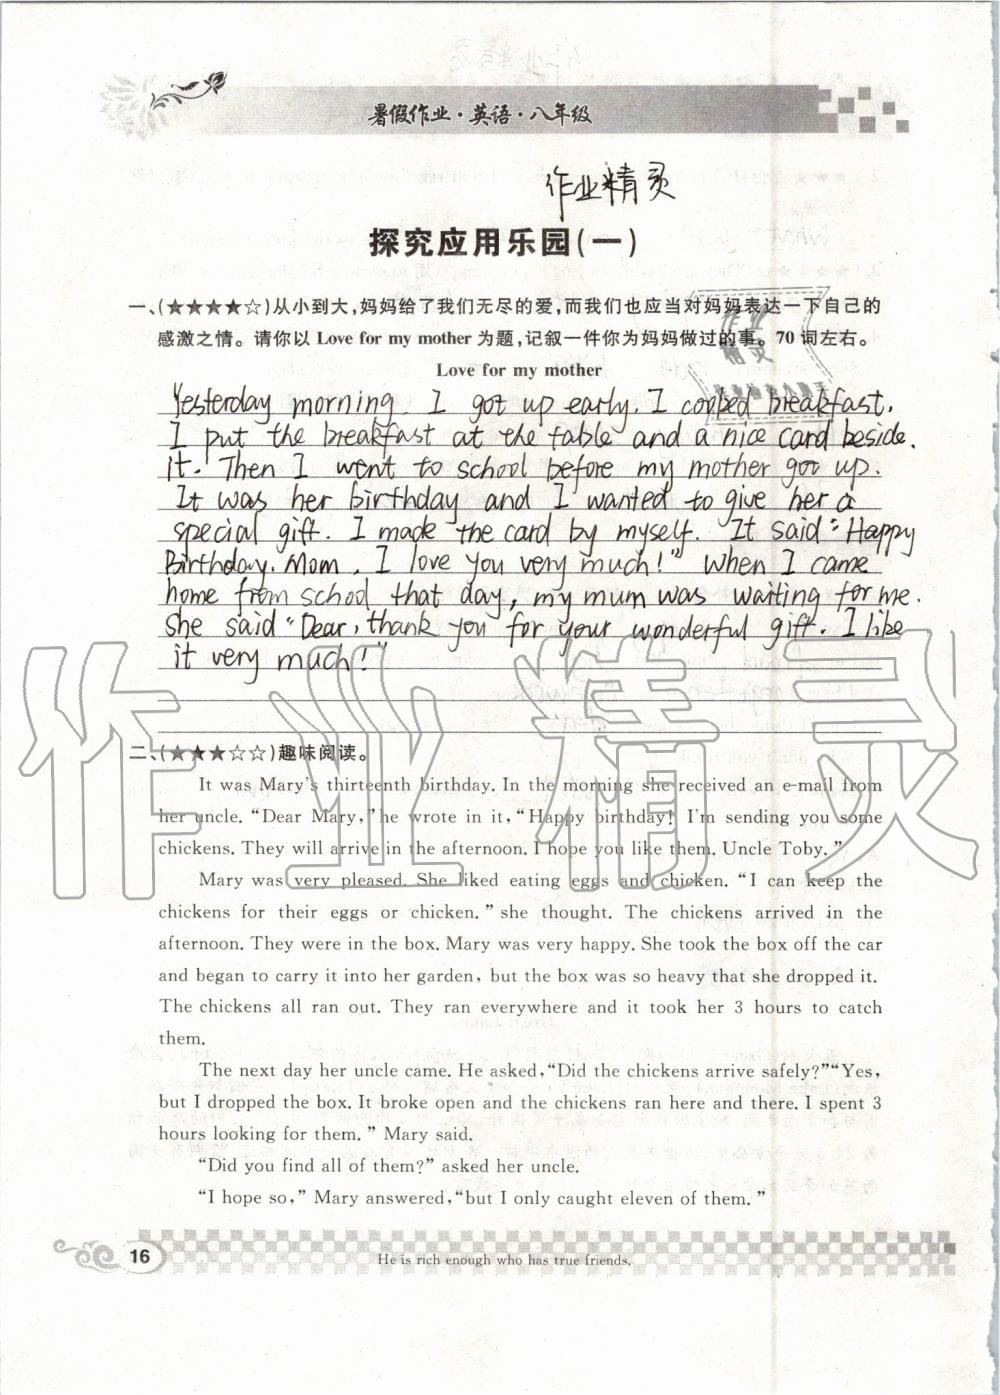 暑假作业·英语·八年级
作业精灵
探究应用乐园(一)
一、(★★★★☆)从小到大,妈妈给了我们无尽的爱,而我们也应当对妈妈表达一下自己的
感激之情。请你以 Love for my mother 为题,记叙一件你为妈妈做过的事。70 词左右。
Love for my mother
Yesterday morning. I got up early. I cooked breakfast.
I put the breakfast at the table and a nice card beside.
it. Then I went to school before my mother got up.
It was her birthday and I wanted to give her a
special gift. I made the card by myself. It said: "Happy
Birthday. Mom, I love you very much!" When I came
home from school that day, my mum was waiting for me.
She said "Dear, thank you for your wonderful gift. I like
it very much!"
二、(★★★☆☆)趣味阅读。
It was Mary's thirteenth birthday. In the morning she received an e-mail from
her uncle. "Dear Mary,"he wrote in it,"Happy birthday! I'm sending you some
chickens. They will arrive in the afternoon. I hope you like them. Uncle Toby."
Mary was very pleased. She liked eating eggs and chicken. "I can keep the
chickens for their eggs or chicken." she thought. The chickens arrived in the
afternoon. They were in the box. Mary was very happy. She took the box off the car
and began to carry it into her garden, but the box was so heavy that she dropped it.
The chickens all ran out. They ran everywhere and it took her 3 hours to catch
them.
The next day her uncle came. He asked,"Did the chickens arrive safely?""Yes,
but I dropped the box. It broke open and the chickens ran here and there. I spent 3
hours looking for them." Mary said.
"Did you find all of them?" asked her uncle.
"I hope so," Mary answered,"but I only caught eleven of them."
16
He is rich enough who has true friends.
作业精灵